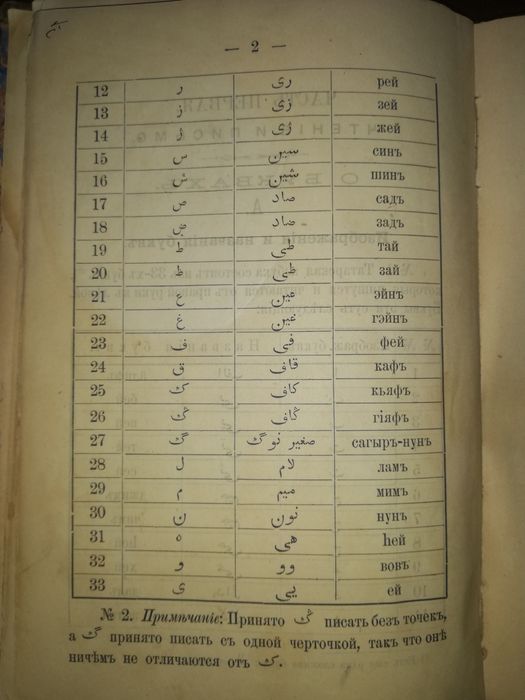 — 2 —
12 ر ری рей
13 ز زی зей
14 ژ ژی жей
15 س سین синъ
16 ش شین шинъ
17 ص صاد садъ
18 ض ضاد задъ
19 ط طی тай
20 ظ ظی зай
21 ع عین эйнъ
22 غ غین гэйнъ
23 ف فی фей
24 ق قاف кафъ
25 ک کاف кьяфъ
26 ڭ ڭاف гіяфъ
27 گ صغیر نوگ сагыръ-нунъ
28 ل لام ламъ
29 م میم мимъ
30 ن نون нунъ
31 ه هی һей
32 و وو вовъ
33 ی یی ей
№ 2. Примѣчаніе: Принято ڭ писать безъ точекъ,
а گ принято писать съ одной черточкой, такъ что онѣ
ничѣмъ не отличаются отъ ک.